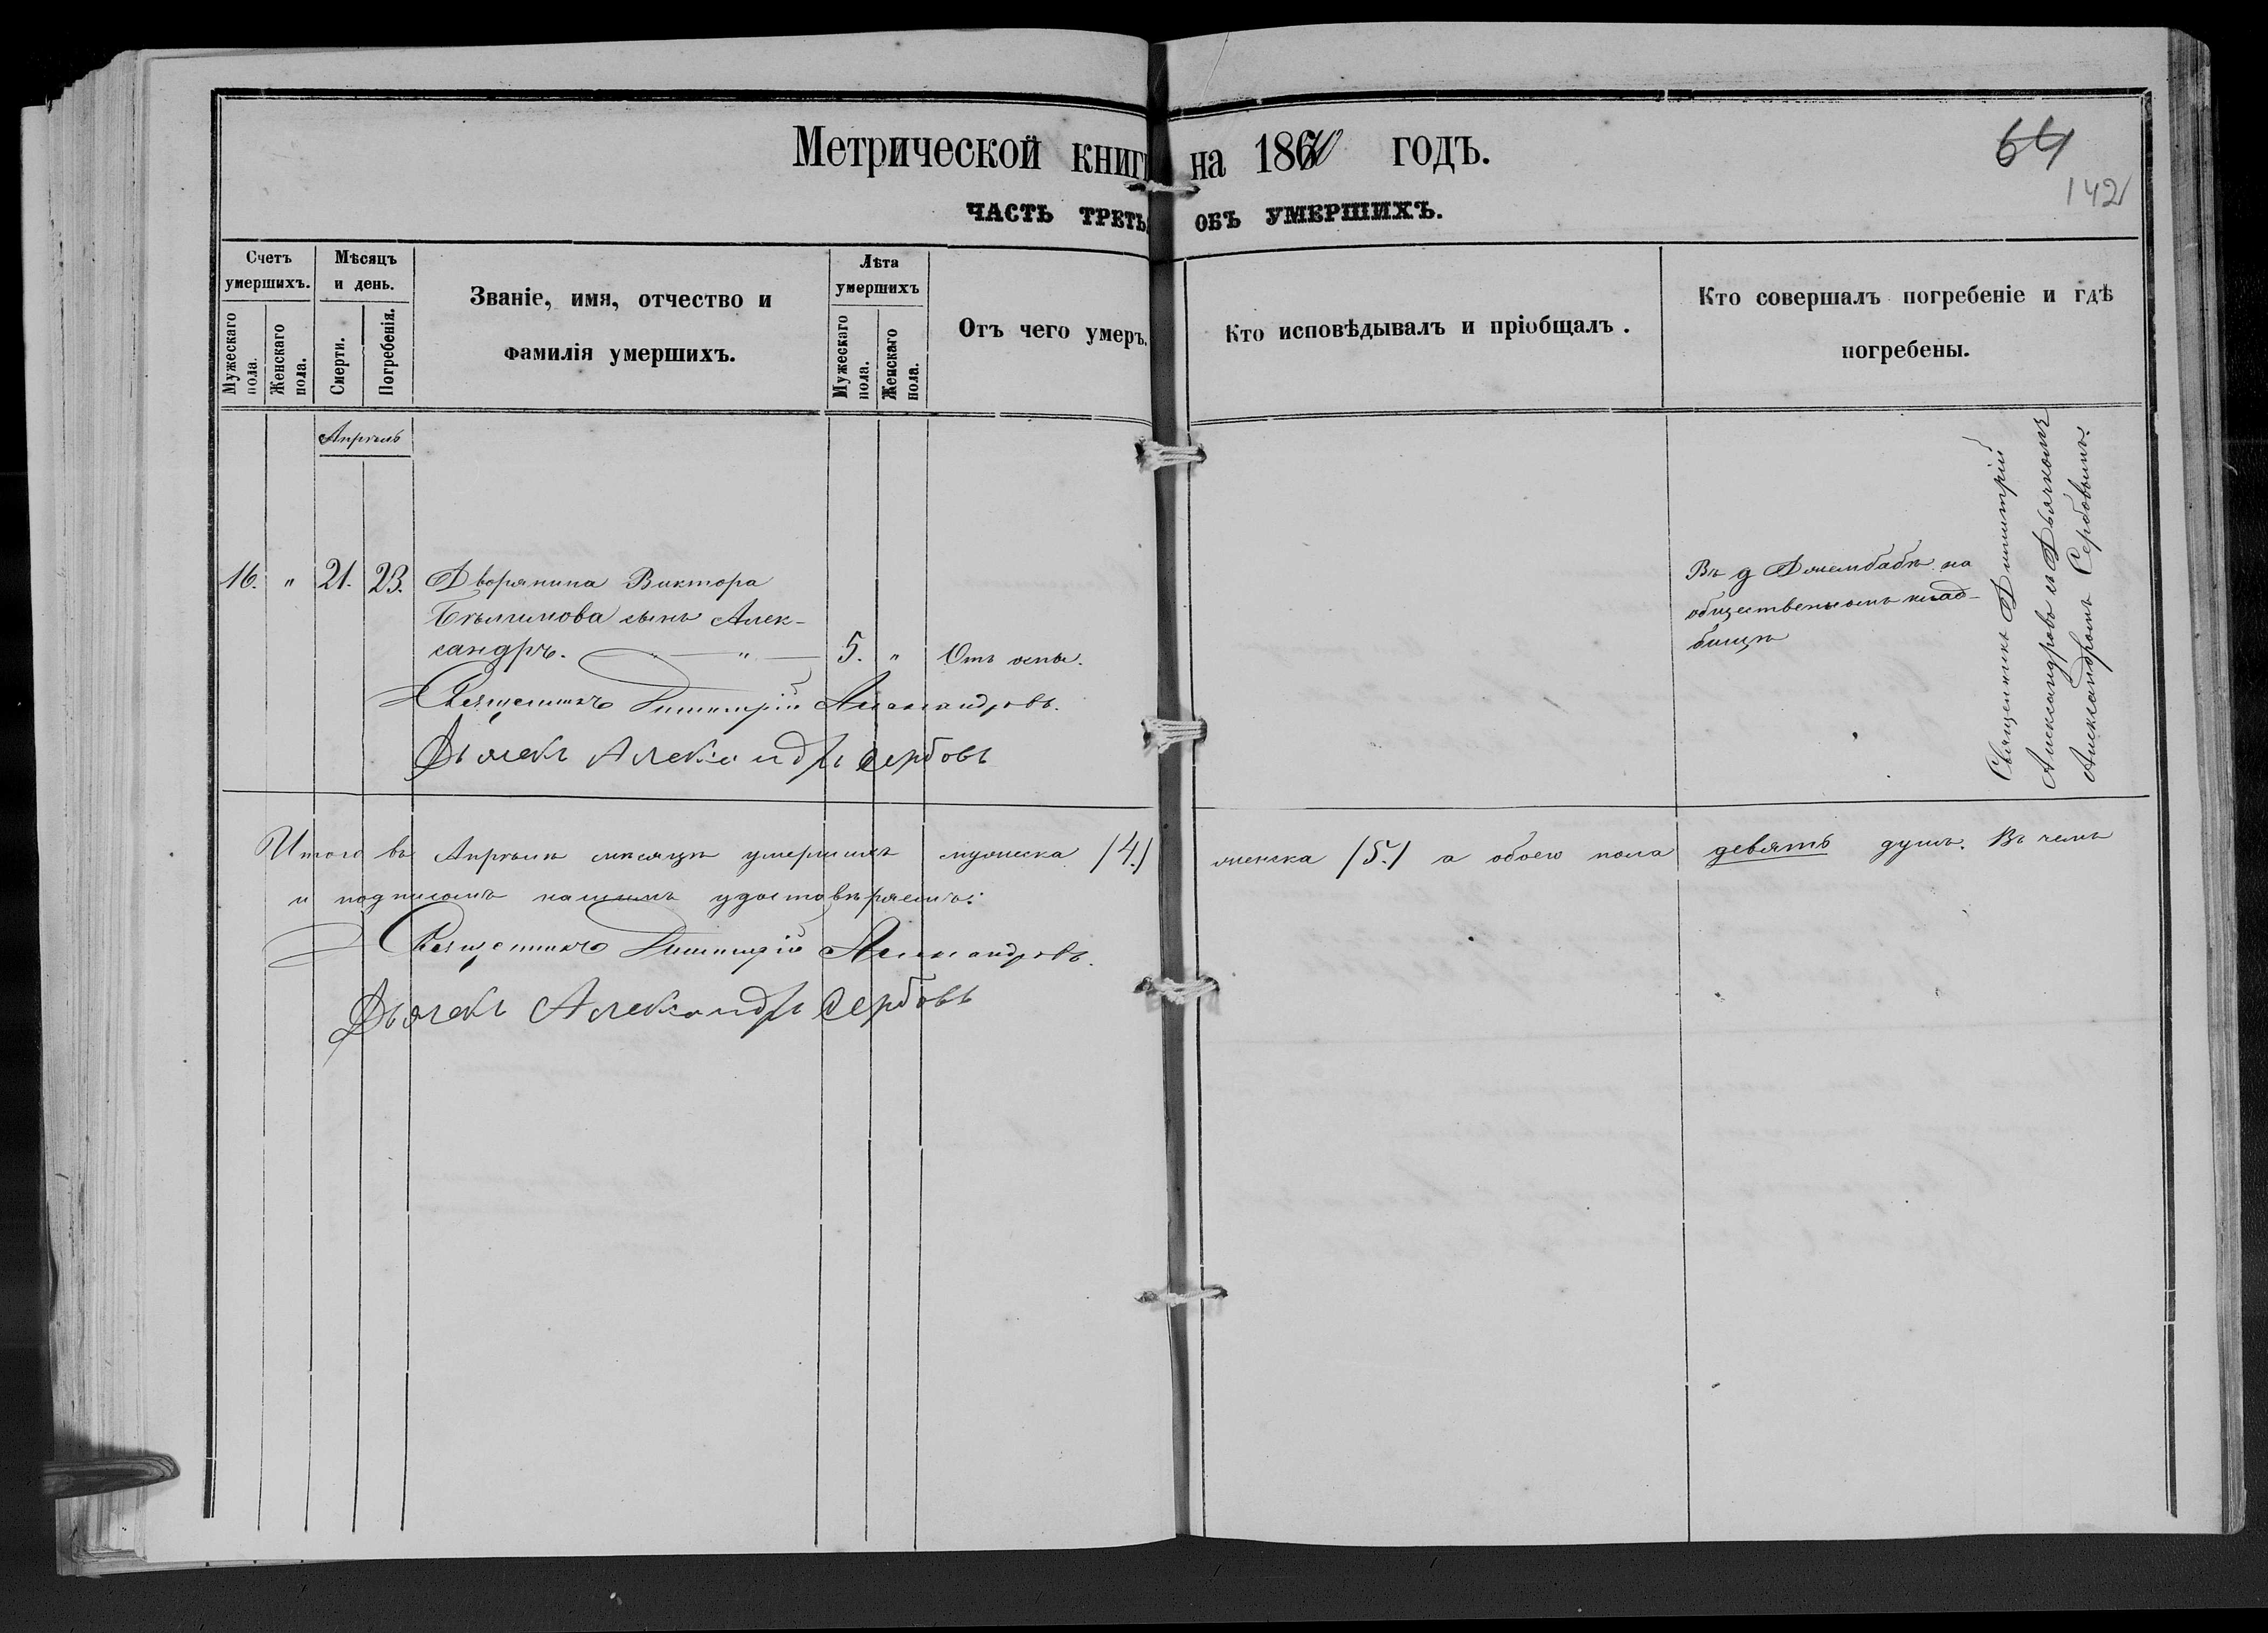 Метрической книги на 1870 годъ.
64
142
ЧАСТЬ ТРЕТЬЯ ОБЪ УМЕРШИХЪ.
Счетъ умершихъ.
Мужескаго пола.
Женскаго пола.
Мѣсяцъ и день.
Смерти.
Погребенія.
Званіе, имя, отчество и
фамилія умершихъ.
Лѣта умершихъ
Мужескаго пола.
Женскаго пола.
Отъ чего умеръ.
Кто исповѣдывалъ и пріобщалъ.
Кто совершалъ погребеніе и гдѣ
погребены.
Апрѣль
16. " 21. 23. Дворянина Виктора
сынъ Алек-
сандръ. " 5. " Отъ оспы.
Въ д на
общественномъ клад-
бищѣ
Священникъ Димитрій
Александровъ съ Дьячкомъ
Александромъ Сербовымъ.
Священникъ Димитрій Александровъ.
Дьячекъ Александръ Сербовъ
Итого въ Апрѣлѣ мѣсяцѣ умершихъ мужеска /4./ женска /5./ а обоего пола девять душъ. Въ чемъ
и подписомъ нашимъ удостовѣряемъ:
Священникъ Димитрій Александровъ.
Дьячекъ Александръ Сербовъ